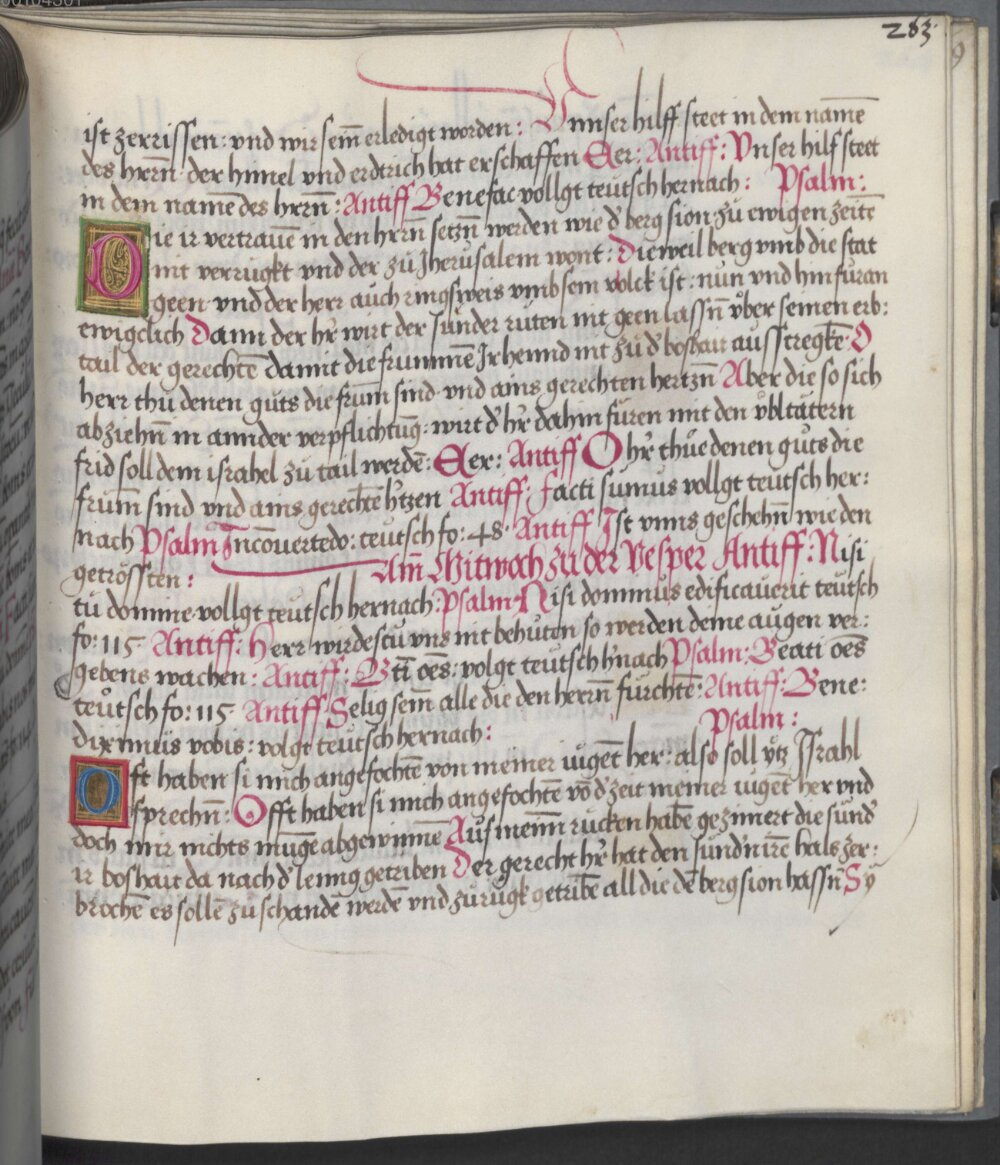 283.
ist zerrissen: vnd wir sein̄ erledigt worden: Vnnser hilff steet in dem namē
des hrrn̄· der himel vnd erdtrich hat erschaffen Eer: Antiff: Vnser hilf steet
in dem namē des hrrn̄: Antiff Benefac vollgt teutsch hernach: Psalm:
Die ir vertrauē in den hrrn̄ setzn̄ werden wie d' berg sion· zů ewigen zeitē
nit verrügkt vnd der zů Jherusalem wont: Dieweil berg vmb die stat
geen· vnd der herr auch ringsweis vmb sein volck ist: nun vnd hinfüran
ewigclich Dann der hr' wirt der sünder růten nit geen lassn̄ vber seinen erb:
tail der gerechtē damit die frummē Jr hennd nit zů d' boshait ausstregktē O
herr thů denen gůts die frum̄ sind· vnd ains gerechten hertzn̄ Aber die so sich
abziehn̄ in annder verpflichtūg: wirt d' hr' dahin füren mit den v̈bltätern
frid soll dem israhel zů tail werdē: Eer: Antiff O hr' thüe denen gůts die
frum̄ sind vnd ains gerechtē h'tzen Antiff: Facti sumus vollgt teutsch her:
nach Psalm In couertēdo: teutsch fo: 48· Antiff Ist vnns geschehn̄ wie den
getrössten: Am̄ Mitwoch zů der Vesper Antiff: Nisi
tu domine· vollgt teutsch hernach Psalm· Nisi dominus edificauerit teutsch
fo: 115 Antiff: Herr wirdestu vns nit behüten so werden deine augen ver:
gebens wachen: Antiff: Bti oēs: volgt teutsch h'nach Psalm: Beati oēs
teutsch fo: 115 Antiff: Selig sein̄ alle die den herrn̄ fürchtē: Antiff: Bene:
diximus vobis: volgt teutsch hernach: Psalm:
Oft haben si mich angefochtē von meiner iugent her: also soll ytz Jsrahl
sprechn̄: Offt haben si mich angefochtē vō d' zeit meiner iugēt her vnd
doch mir nichts mügē abgewinnē Auf meinn̄ rücken habē gezimert die sünd'
ir boshait da nach d' lenng getriben Der gerecht hr' hat den sünd'n irē hals zer:
brochē es sollē zu schandē werdē vnd zůrugk getribē all die dē berg sion hassn̄ Sy